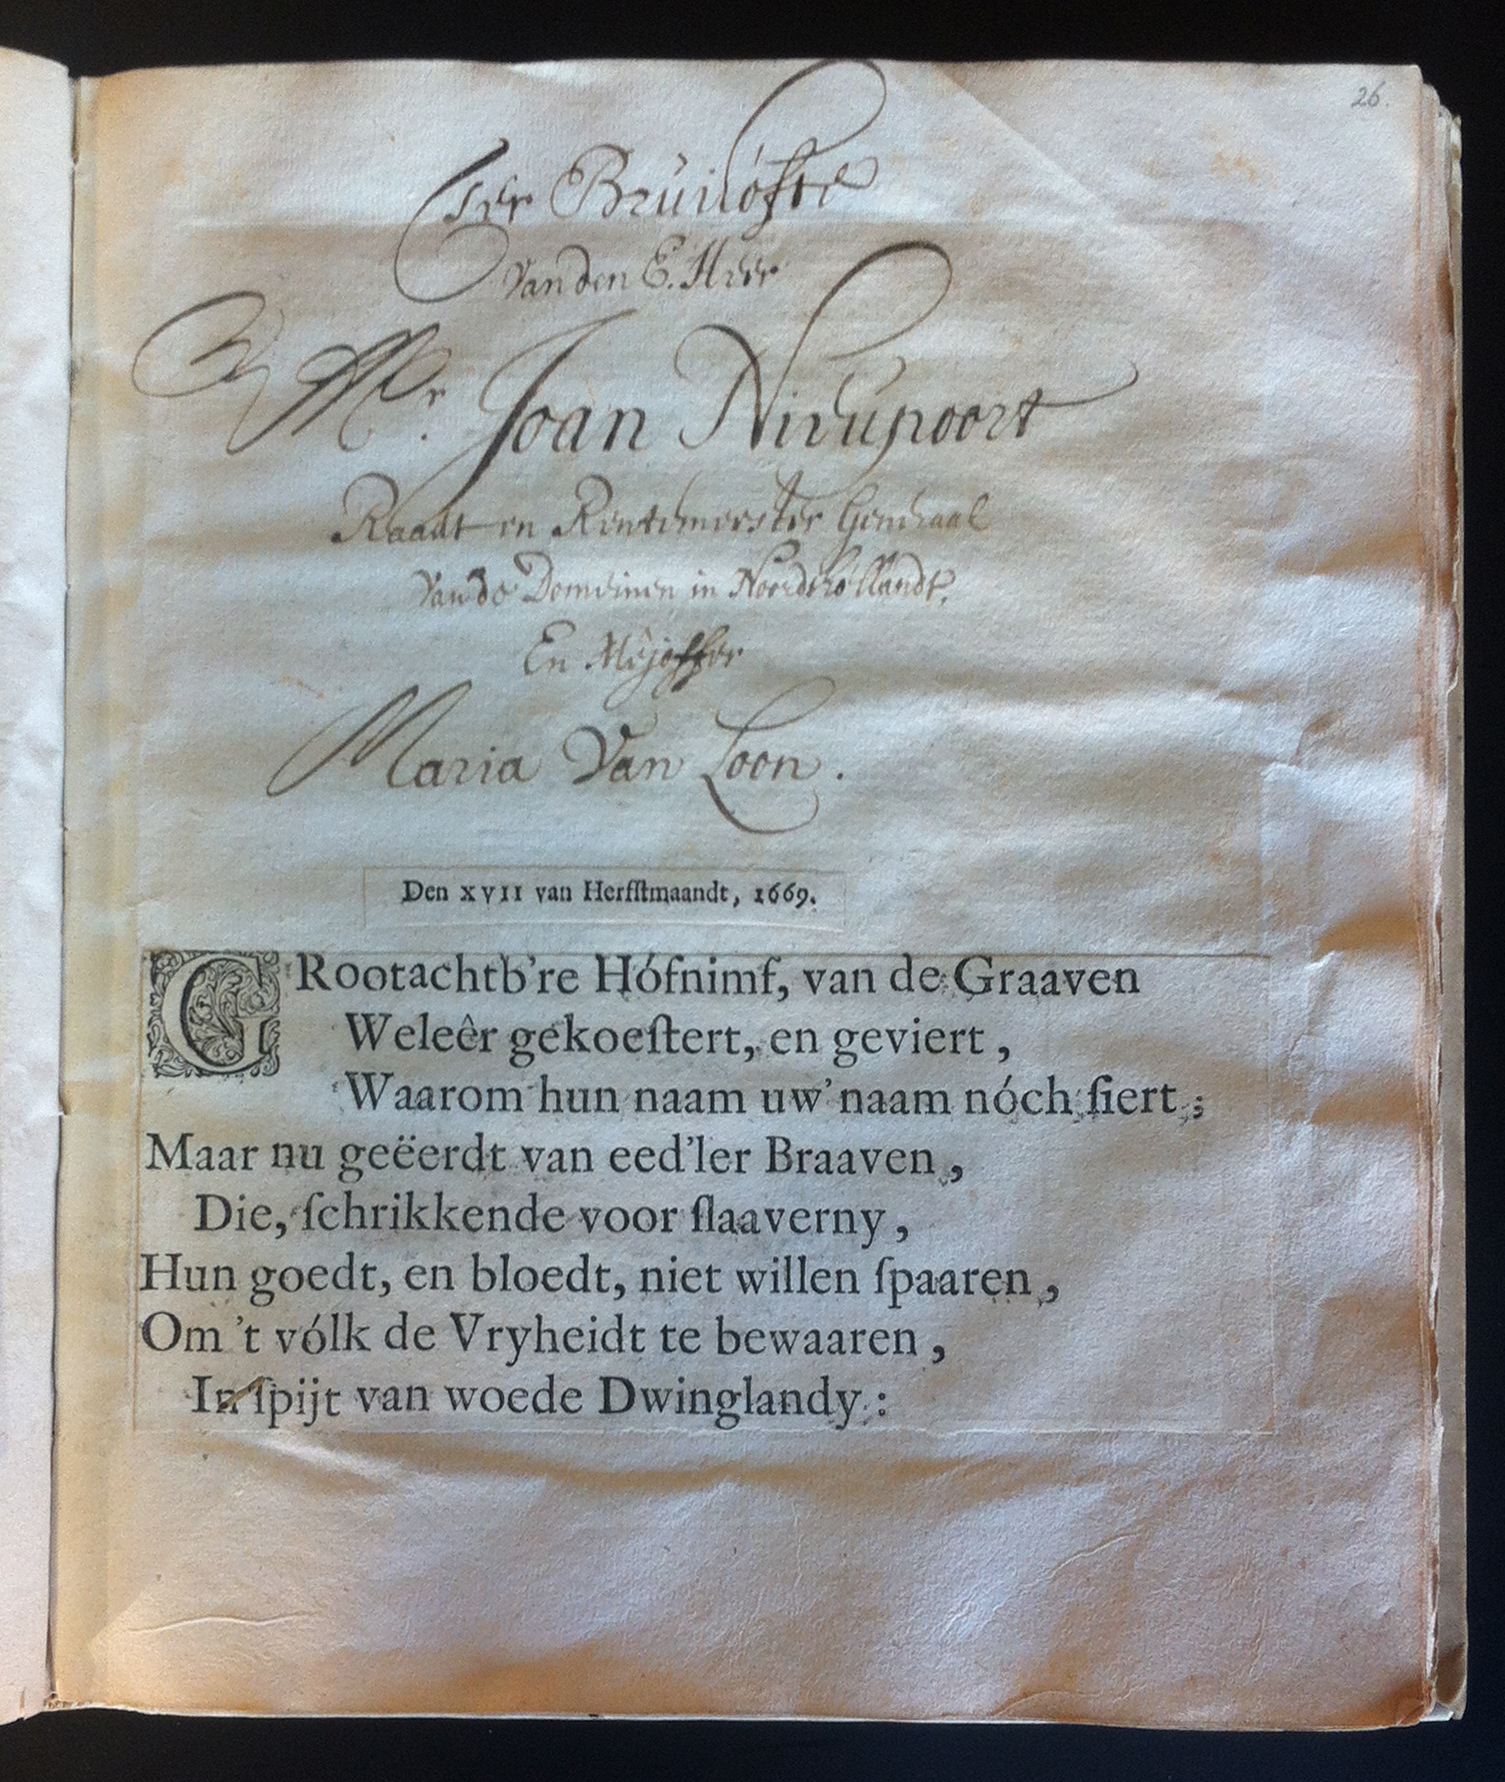 26.
Ter Bruilófte
Van den E. Heer
Mr. Joan Nieupoort
Raadt en Rentemeester Generaal
Van de Domeinen in Noordthóllandt,
En Mejoffer
Maria Van Loon.
Den XVII van Herfſtmaandt, 1669.
GRootachtb’re Hófnimf, van de Graaven
Weleêr gekoeſtert, en geviert,
Waarom hun naam uw’ naam nóch ſiert;
Maar nu geëerdt van eed’ler Braaven,
Die, ſchrikkende voor ſlaaverny,
Hun goedt, en bloedt, niet willen ſpaaren,
Om ’t vólk de Vryheidt te bewaaren,
In ſpijt van woede Dwinglandy: